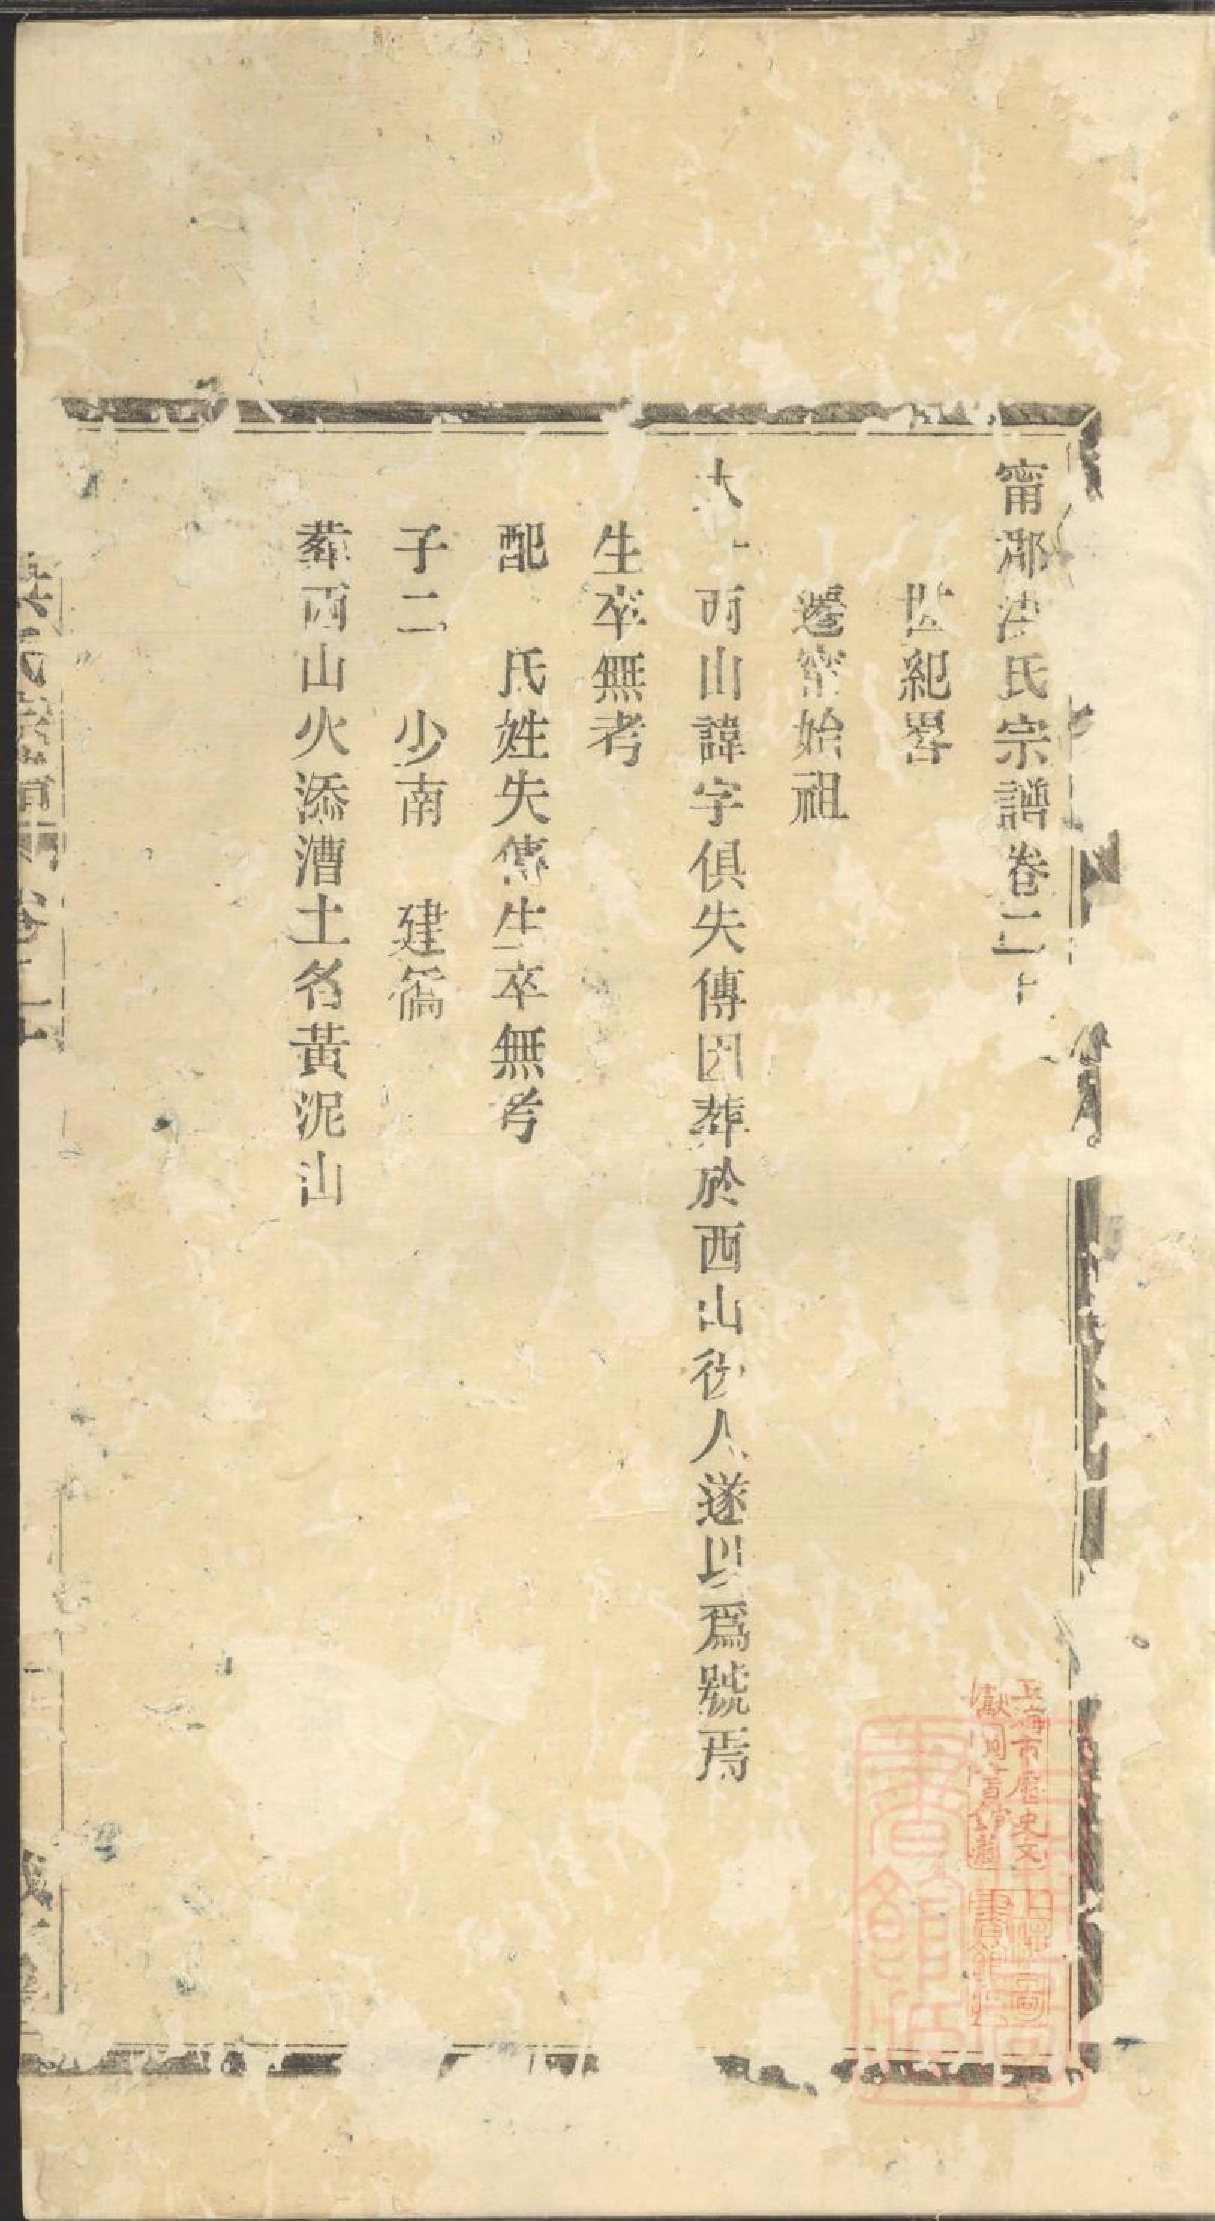 甯郡洪氏宗譜卷二
世紀畧
遷甯始祖
大一 西山諱字俱失傳因葬於西山後人遂以爲號焉
生卒無考
配　氏姓失傳生卒無考
子二　少南　建
葬西山火添漕土名黃泥山
洪氏宗譜 卷二
上海市歷史文
獻圖書館藏
上海圖
書館藏